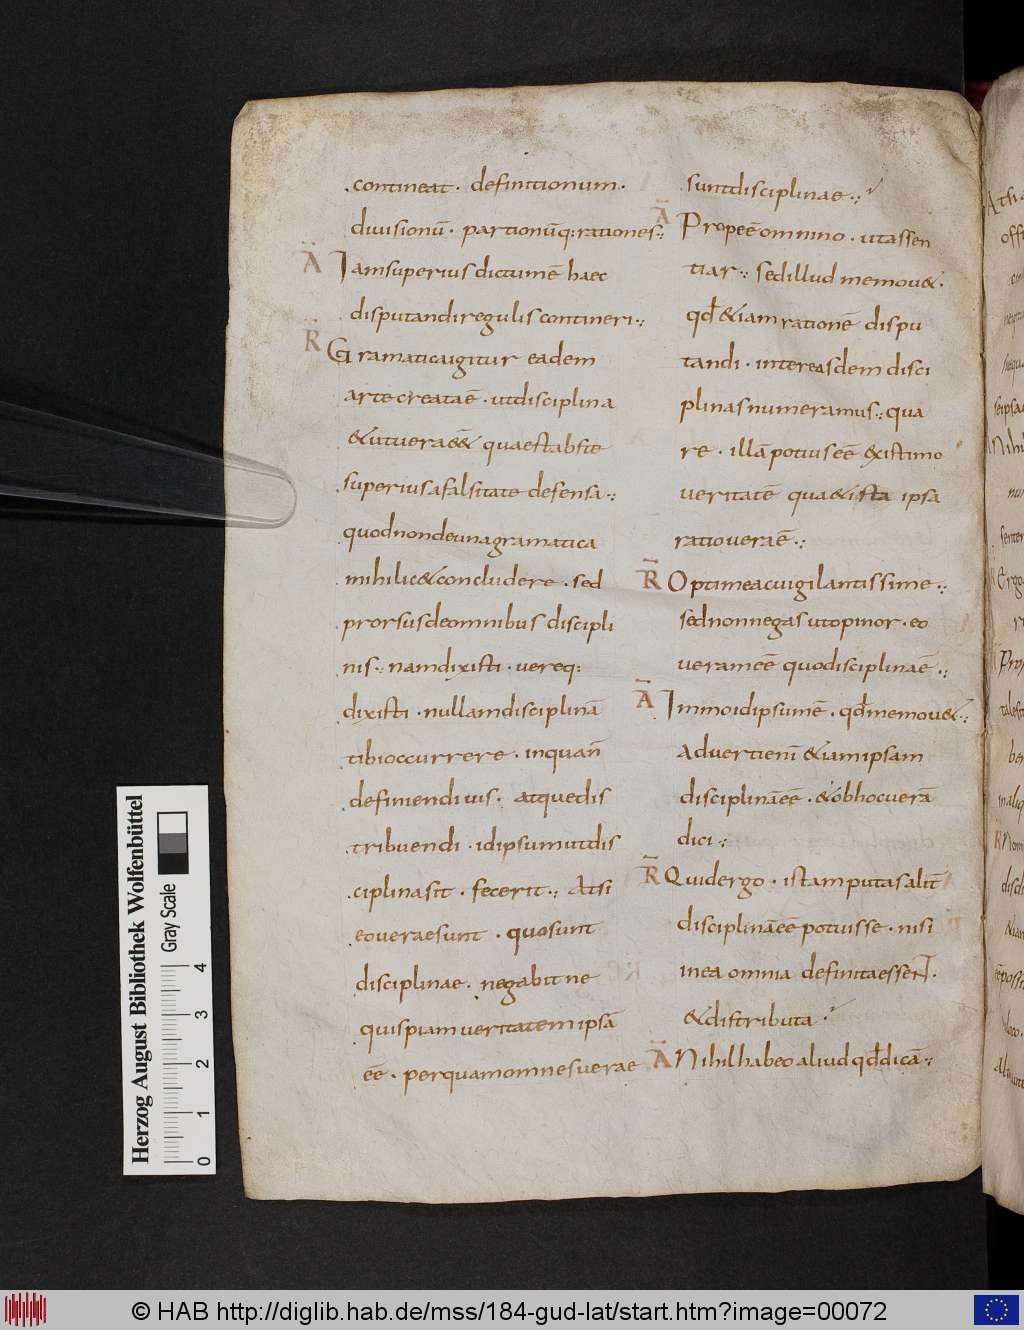 contineat · definitionum ·
diuisionū · partionūq: rationes ·:
Ā Iam superius dictum ē haec
disputandi regulis contineri ·:
R̄ Gramatica igitur eadem
arte creata ē · ut disciplina
& ut uera eē& quae st abs te
superius a falsitate defensa ·:
quod non de una gramatica
mihi lic& concludere · sed
prorsus de omnibus discipli
nis ·: nam dixisti · uereq:
dixisti · nullam disciplinā
tibi occurrere · in qua n̄
definiendi uis · atque dis
tribuendi · id ipsum ut dis
ciplina sit · fecerit ·: At si
eo uerae sunt · quo sunt
disciplinae · negabitne
quispiam ueritatem ipsā
eē · per quam omnes uerae
sunt disciplinae ·:
Ā Prope ē omnino · ut assen
tiar ·: sed illud me mou& ·
qđ &iam rationē dispu
tandi · inter easdem disci
plinas numeramus ·: qua
re · illā potius eē existimo
ueritatē qua & ista ipsa
ratio uera ē ·:
R̄ Optime ac uigilantissime ·:
sed non negas ut opinor · eo
ueram eē quo disciplina ē ·:
Ā Immo id ipsum ē · qđ me mou& ·:
Aduerti eni &iam ipsam
disciplinā eē · & ob hoc uerā
dici ·:
R̄ Quid ergo · istam putas alit̄
disciplinā eē potuisse · nisi
in ea omnia definita essent ·
& distributa ·
Ā Nihil habeo aliud qđ dicā ·:
Herzog August Bibliothek Wolfenbüttel
Gray Scale
0 1 2 3 4
© HAB http://diglib.hab.de/mss/184-gud-lat/start.htm?image=00072